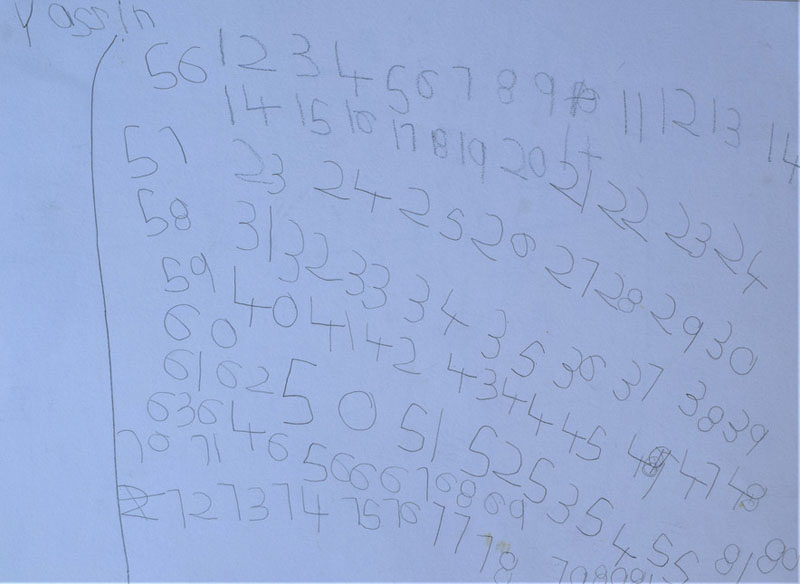 Yassin
56 1 2 3 4 5 6 7 8 9 10 11 12 13 14
14 15 16 17 18 19 20 21 22 23 24
57 23 24 25 26 27 28 29 30
58 31 32 33 34 35 36 37 38 39
59 40 41 42 43 44 45 46 47 48
60 50 51 52 53 54 55 81 80
61 62
63 64 65 66 67 68 69
70 71
72 73 74 75 76 77 78 79 80